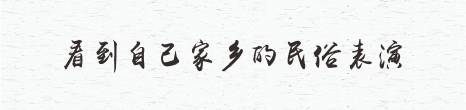 看到自己家乡的民俗表演